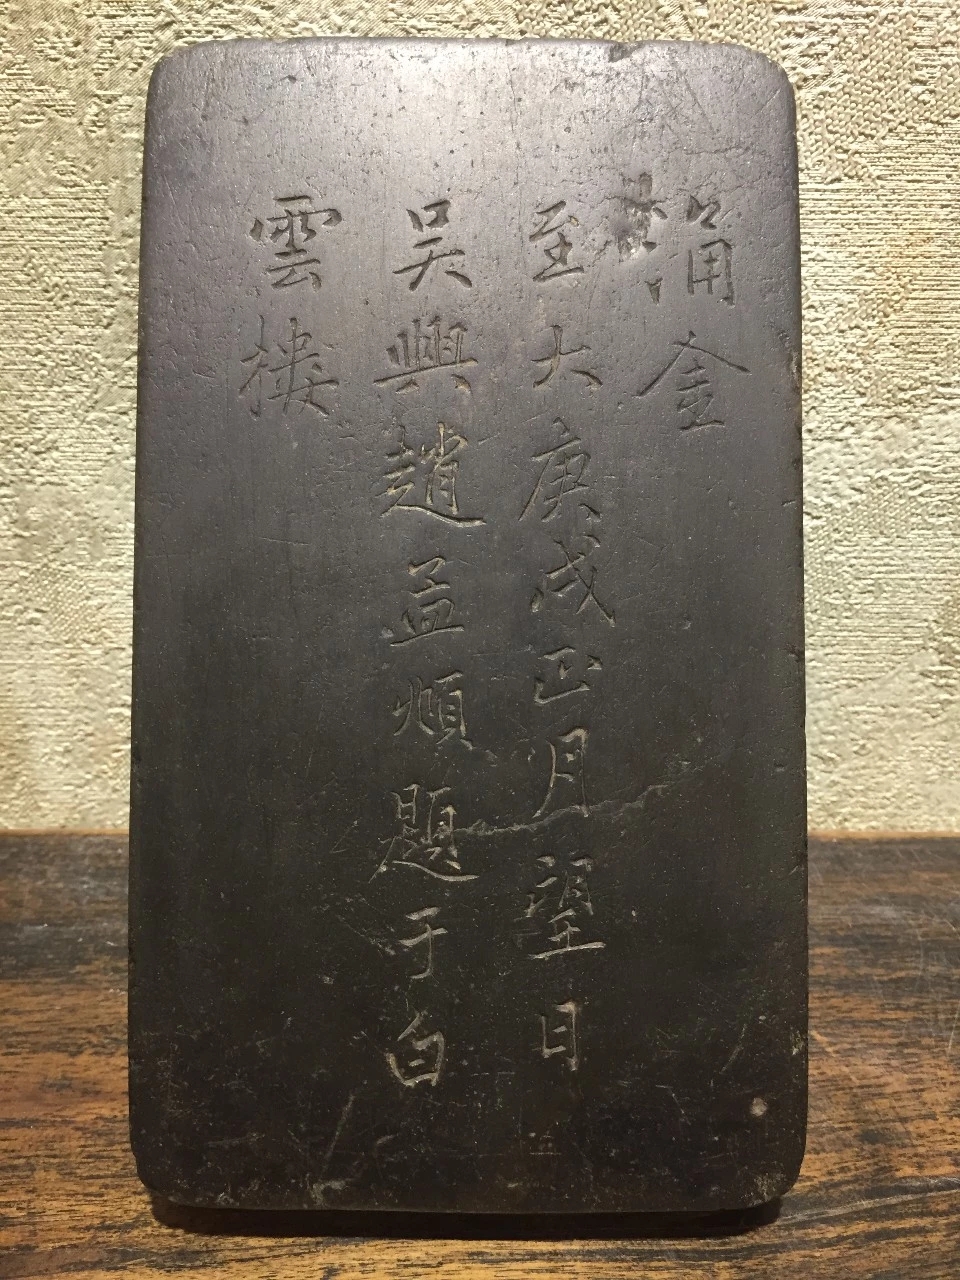 涌金
至大庚戌正月望日
吴興趙孟頫題于白
雲樓